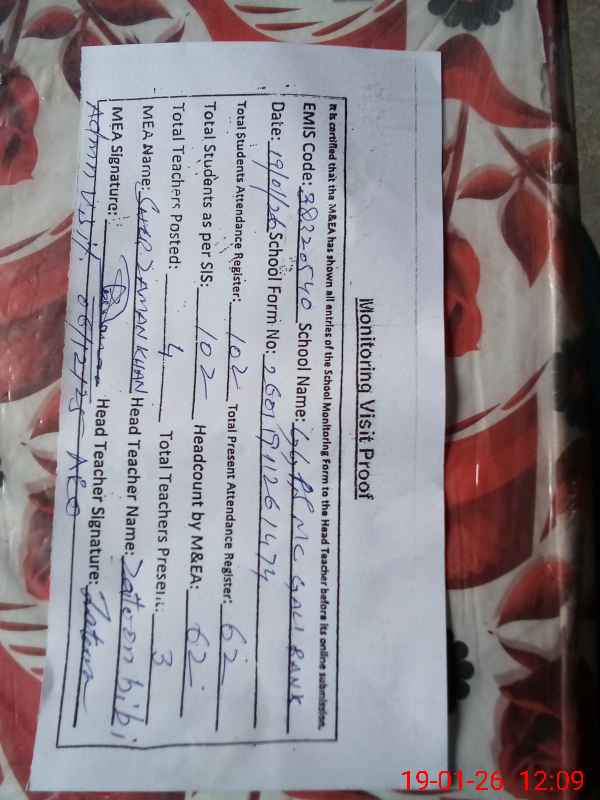 Monitoring Visit Proof
It is certified that the M&EA has shown all entries of the School Monitoring Form to the Head Teacher before its online submission.
EMIS Code: 38220540 School Name: GGPS MC GALI BANK
Date: 19/01/26 School Form No: 2601911261474
Total Students Attendance Register: 102 Total Present Attendance Register: 62
Total Students as per SIS: 102 Headcount by M&EA: 62
Total Teachers Posted: 4 Total Teachers Present: 3
MEA Name: SHER ZAMAN KHAN Head Teacher Name: Zatoon bibi
MEA Signature: Head Teacher Signature: Zatoon
Admn Visit. 06/12/25 AEO
19-01-26 12:09